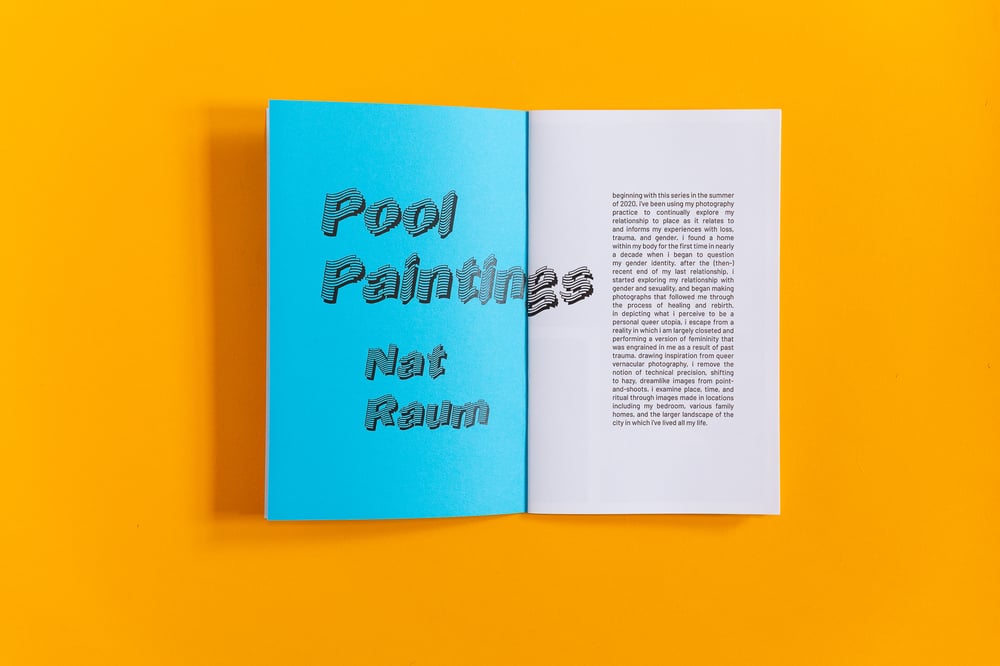 Pool
Paintings
Nat
Raum
beginning with this series in the summer
of 2020, i've been using my photography
practice to continually explore my
relationship to place as it relates to
and informs my experiences with loss,
trauma, and gender. i found a home
within my body for the first time in nearly
a decade when i began to question
my gender identity. after the (then-)
recent end of my last relationship, i
started exploring my relationship with
gender and sexuality, and began making
photographs that followed me through
the process of healing and rebirth.
in depicting what i perceive to be a
personal queer utopia, i escape from a
reality in which i am largely closeted and
performing a version of femininity that
was engrained in me as a result of past
trauma. drawing inspiration from queer
vernacular photography, i remove the
notion of technical precision, shifting
to hazy, dreamlike images from point-
and-shoots. i examine place, time, and
ritual through images made in locations
including my bedroom, various family
homes, and the larger landscape of the
city in which i've lived all my life.